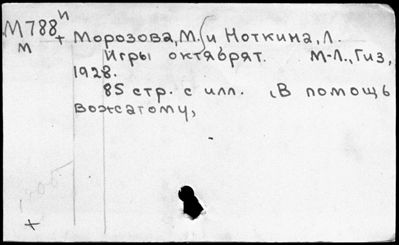 М788 и
м + Морозова, М. и Ноткина, Л.
Игры октябрят. М-Л., Гиз,
1928.
85 стр. с илл. (В помощь
вожатому,
+